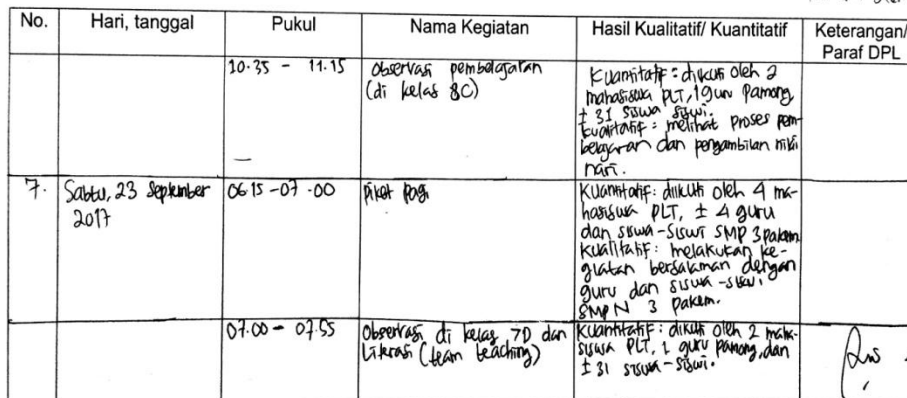 No. Hari, tanggal Pukul Nama Kegiatan Hasil Kualitatif/ Kuantitatif Keterangan/
Paraf DPL
10.35 - 11.15 Observasi pembelajaran
(di kelas 8C)
Kuantitatif : diikuti oleh 2
mahasiswa PLT, 1 guru pamong
± 31 siswa siswi.
Kualitatif : melihat proses pem-
belajaran dan pengambilan nilai
nari.
7. Sabtu, 23 September
2017
06.15 - 07.00 Piket Pagi
Kuantitatif: diikuti oleh 4 ma-
hasiswa PLT, ± 4 guru
dan siswa-siswi SMP 3 pakem
Kualitatif: melakukan ke-
giatan bersalaman dengan
guru dan siswa-siswi
SMP N 3 Pakem.
07.00 - 07.55 Observasi di kelas 7D dan
Literasi (team teaching)
Kuantitatif : diikuti oleh 2 maha-
siswa PLT, 1 guru pamong, dan
± 31 siswa-siswi.